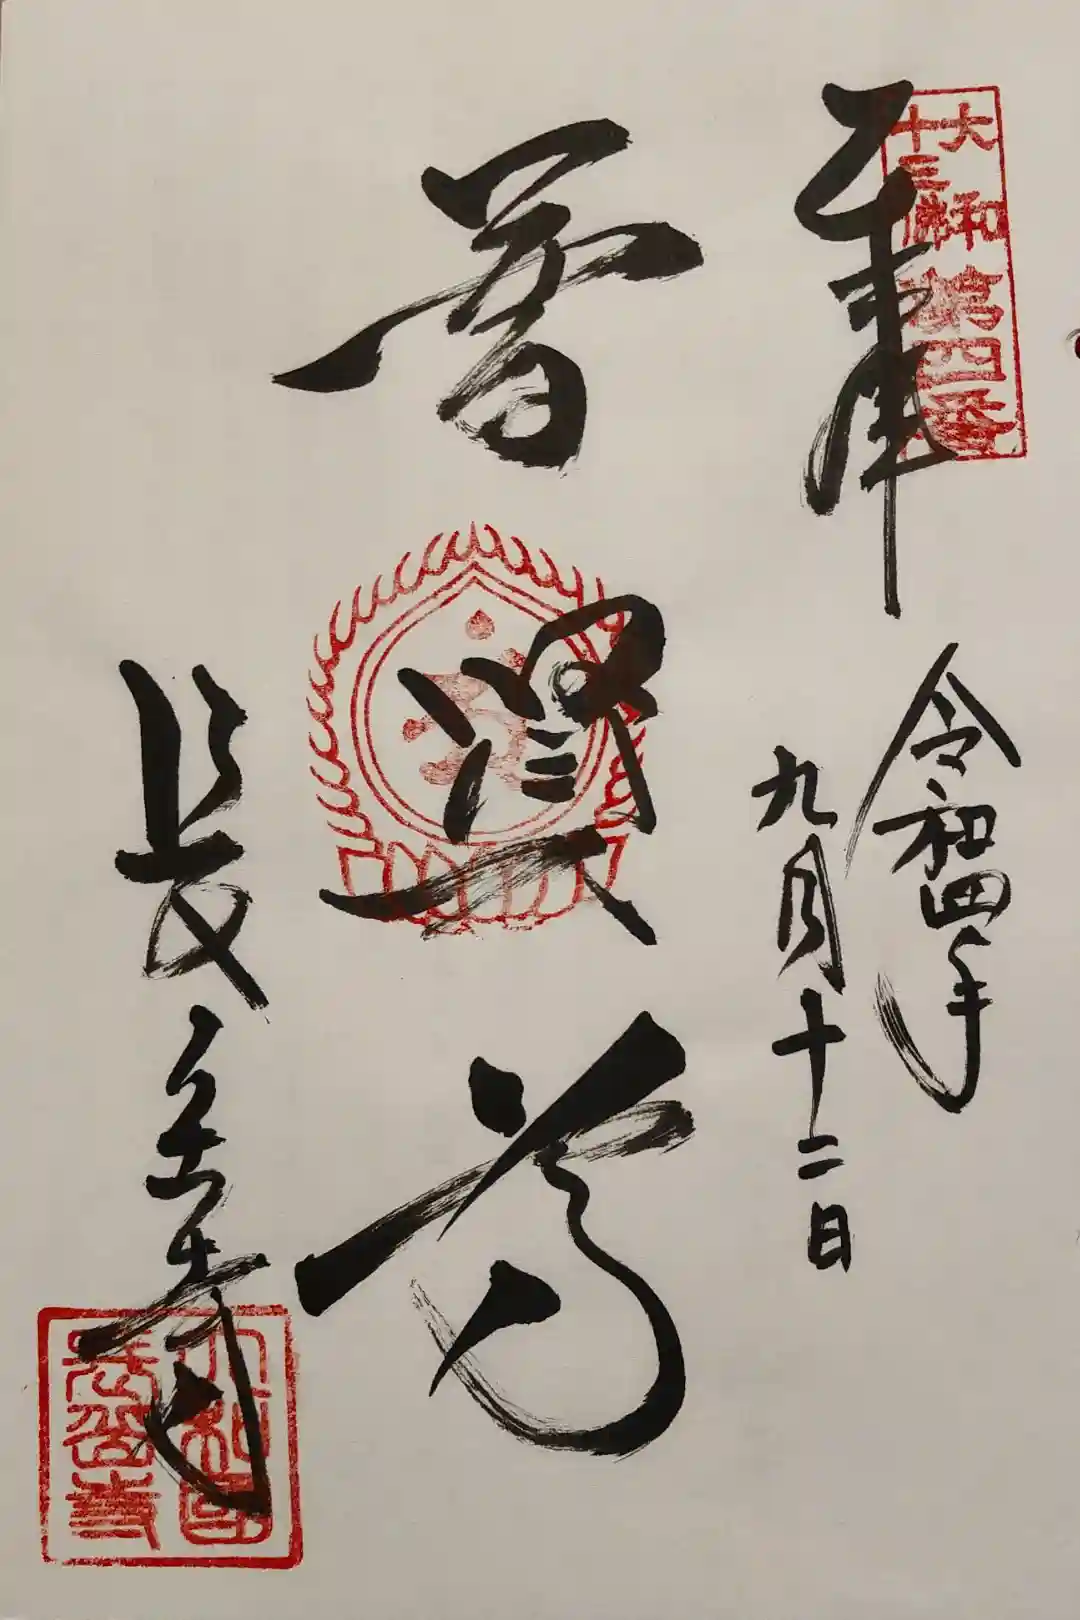 大和
十三佛
第四番
奉拝
令和四年
九月十二日
普賢尊
長岳寺
大和國
長岳寺